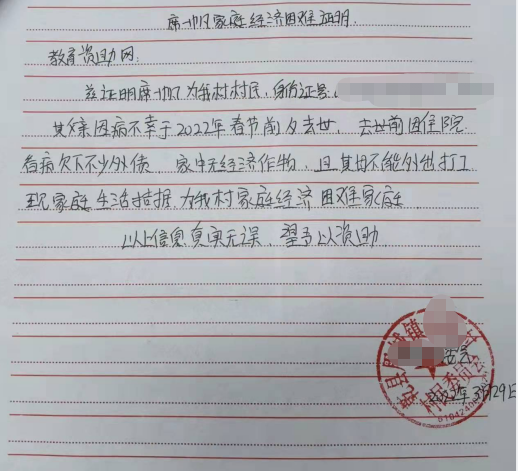 席帆家庭经济困难证明
教育资助网
兹证明席帆为我村村民,身份证号
其父亲因病不幸于2022年春节前夕去世,去世前因住院
看病欠下不少外债 家中无经济作物,且其母不能外出打工
现家庭生活拮据,为我村家庭经济困难家庭
以上信息真实无误,望予以资助
村民委员会
2022年3月29日